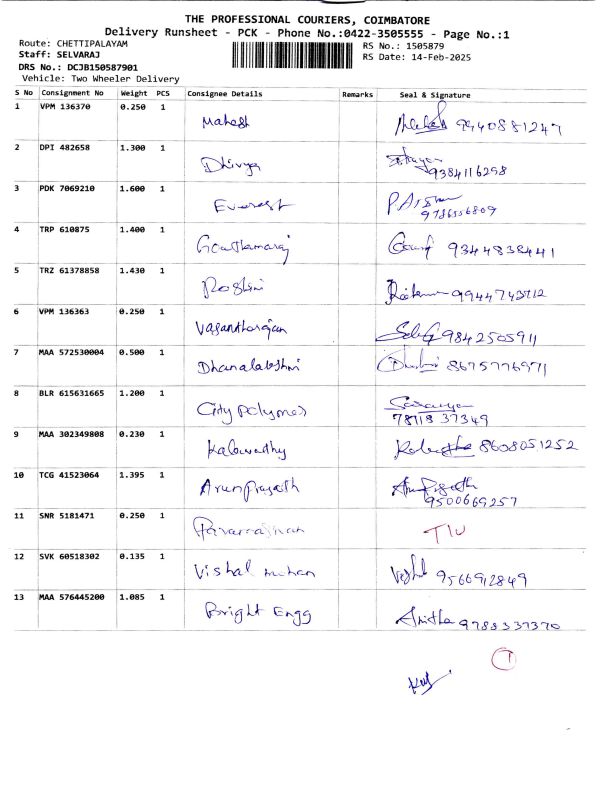 THE PROFESSIONAL COURIERS, COIMBATORE
Delivery Runsheet - PCK - Phone No.:0422-3505555 - Page No.:1
Route: CHETTIPALAYAM RS No.: 1505879
Staff: SELVARAJ RS Date: 14-Feb-2025
DRS No.: DCJB150587901
Vehicle: Two Wheeler Delivery
S No Consignment No Weight PCS Consignee Details Remarks Seal & Signature
1 VPM 136370 0.250 1 Mahesh 9940881247
2 DPI 482658 1.300 1 Dhivya
9384116298
3 PDK 7069210 1.600 1 Everest
9786556809
4 TRP 610875 1.400 1 Gowthamaraj 9344838441
5 TRZ 61378858 1.430 1 Roshni 9944743712
6 VPM 136363 0.250 1 Vasantharajan 9842505911
7 MAA 572530004 0.500 1 Dhanalakshmi 8675776971
8 BLR 615631665 1.200 1 City polymer Saranya
7811837349
9 MAA 302349808 0.230 1 Kalavathy 8608051252
10 TCG 41523064 1.395 1 Arunprasath
9500669257
11 SNR 5181471 0.250 1
12 SVK 60518302 0.135 1 Vishal mohan 9566912849
13 MAA 576445200 1.085 1 Bright Engg Anitha 9788337370